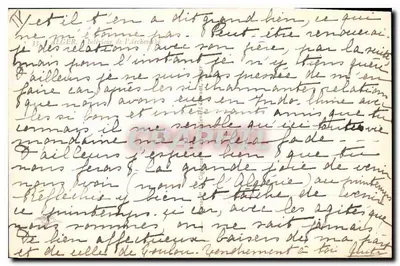 y et il t'en a dit grand bien, ce qui
ne m'étonne pas. Peut-être renouerai-
je des relations avec son père, par la suite
mais pour l'instant je n'y tiens guère
D'ailleurs je ne suis pas pressée de m'en
faire car, après les si charmantes relations
que nous avons eues en Indo-Chine avec
les si bons et amis que tu
connais il me semble qu'ici toute vie
mondaine me sera fade.
D'ailleurs j'espère bien que tu
nous feras la grande joie de venir
nous voir (nous et l'Algérie) au printemps
Réfléchis y bien et tâche de venir
ce printemps-ci car, avec les agités que
nous sommes on ne sait jamais!
Je bien affectueux baisers de ma part
et de celles de Toulon. Tendrement à toi